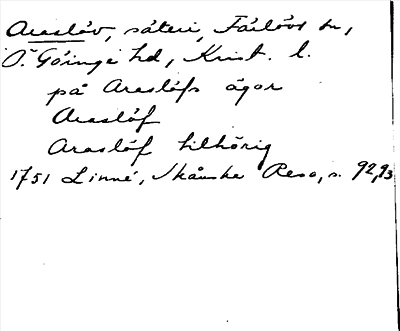 Araslöv, säteri, Färlövs sn,
Ö. Göinge hd, Krist. l.
på Araslöfs ägor
Araslöf
Araslöf tilhörig
1751 Linné, Skånska Resa, s. 92, 93